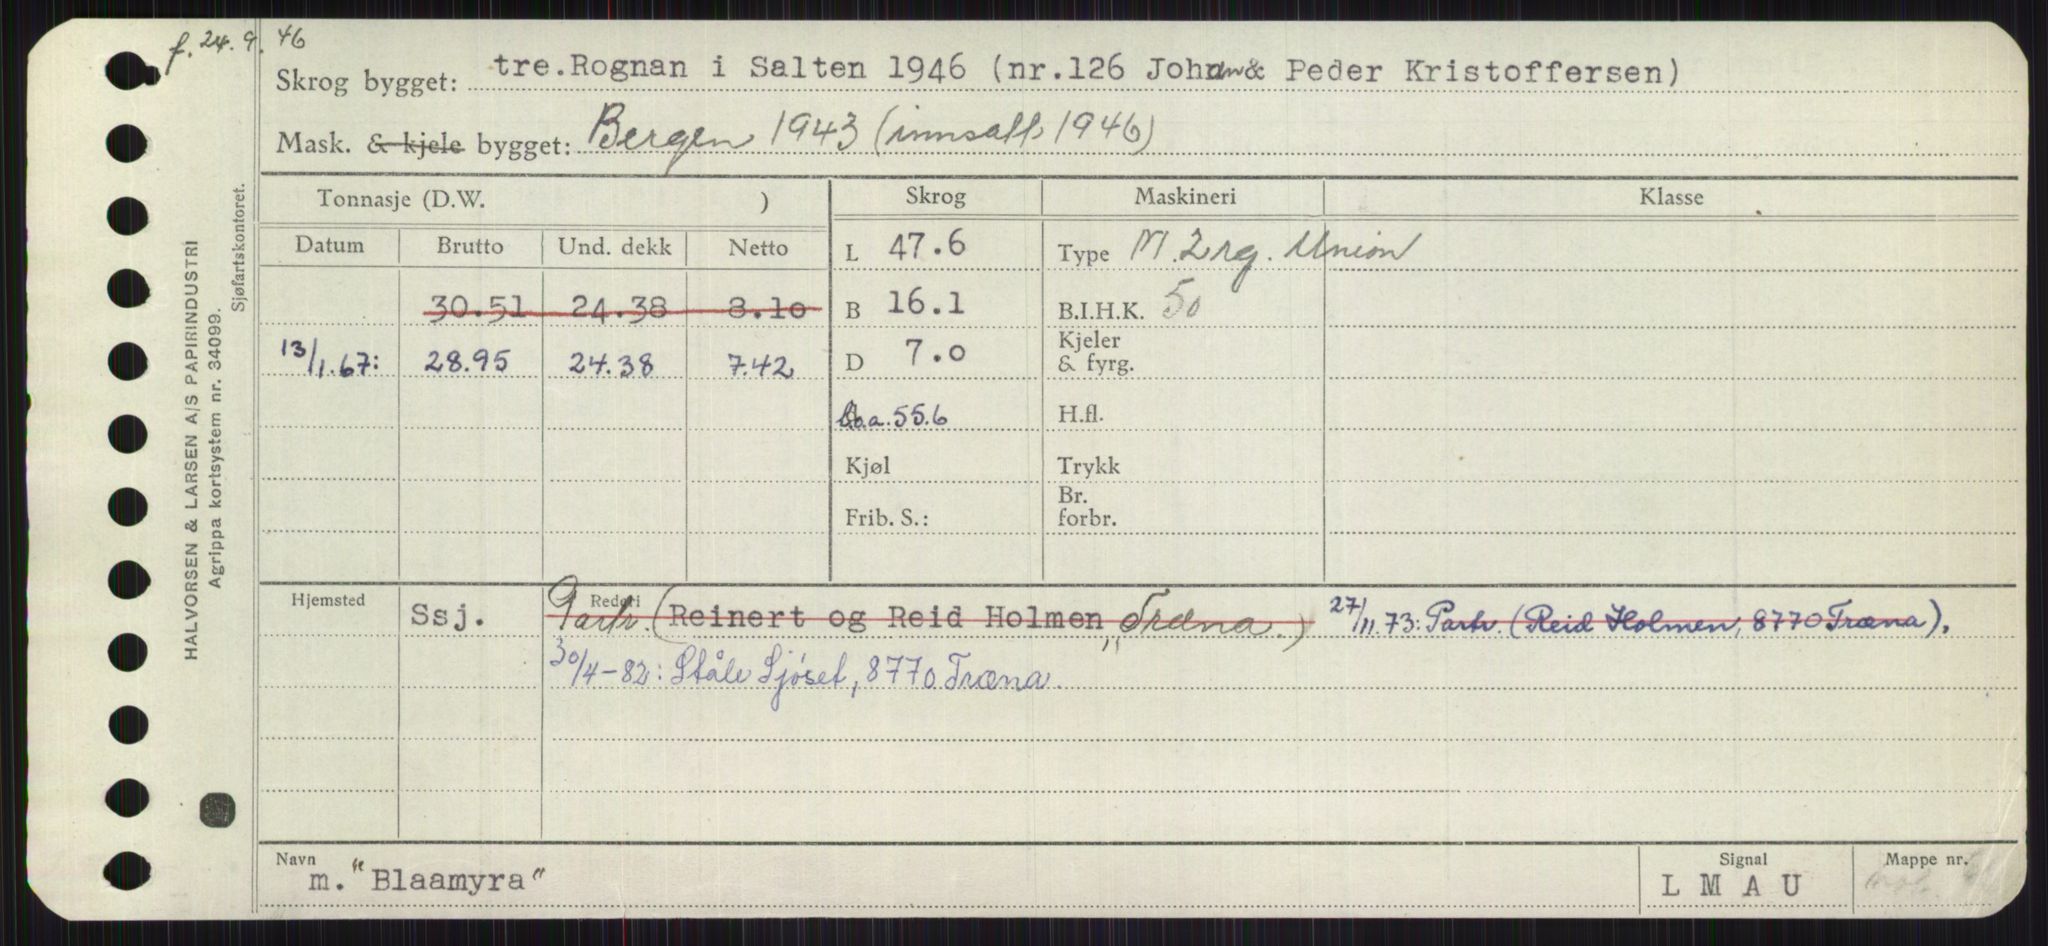 f. 24.9.46
Skrog bygget: tre. Rognan i Salten 1946 (nr.126 Johan & Peder Kristoffersen)
Mask. & kjele bygget: Bergen 1943 (innsatt 1946)
Tonnasje (D.W. )
Skrog Maskineri Klasse
Datum Brutto Und. dekk Netto
L 47.6 Type M. 2 rg. Union
30.51 24.38 8.10
B 16.1 B.I.H.K. 50
13/1.67: 28.95 24.38 7.42
D 7.0 Kjeler & fyrg.
L.o.a. 55.6 H.fl.
Kjøl Trykk
Frib. S.: Br. forbr.
Hjemsted Ssj. Rederi Partr. (Reinert og Reid Holmen, Træna.) 27/11.73: Partr. (Reid Holmen, 8770 Træna).
30/4-82: Ståle Sjøset, 8770 Træna.
Navn m. "Blaamyra"
Signal L M A U
Mappe nr.
HALVORSEN & LARSEN A/S PAPIRINDUSTRI
Agrippa kortsystem nr. 34099.
Sjøfartskontoret.